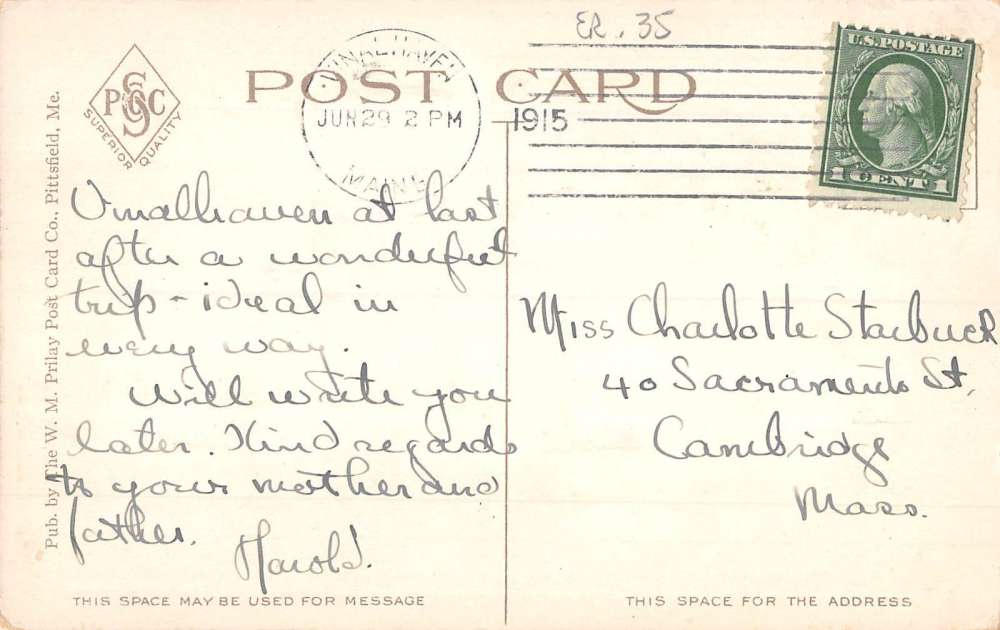 ER. 35
POST CARD
VINALHAVEN
JUN 29 2 PM
1915
MAINE
U.S. POSTAGE
1 CENT 1
P S C
SUPERIOR QUALITY
Pub. by The W. M. Prilay Post Card Co., Pittsfield, Me.
Vinalhaven at last
after a wonderful
trip - ideal in
every way.
Will write you
later. Kind regards
to your mother and
father.
Harold.
Miss Charlotte Starbuck
40 Sacramento St.
Cambridge
Mass.
THIS SPACE MAY BE USED FOR MESSAGE
THIS SPACE FOR THE ADDRESS